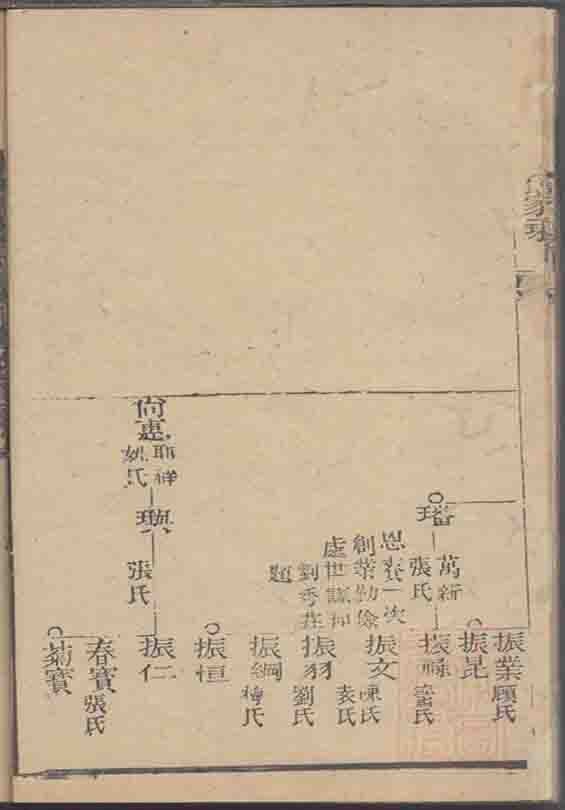 振業 顧氏
振昆
璠 萬新 張氏
振祿
振文 陳氏 袁氏
恩養一次
創業勤儉
處世謙和
劉秀莊
題
振羽 劉氏
振綱 梅氏
振恒
尚惠 耶祥 姚氏
璵 張氏
振仁
春寶 張氏
菊寶